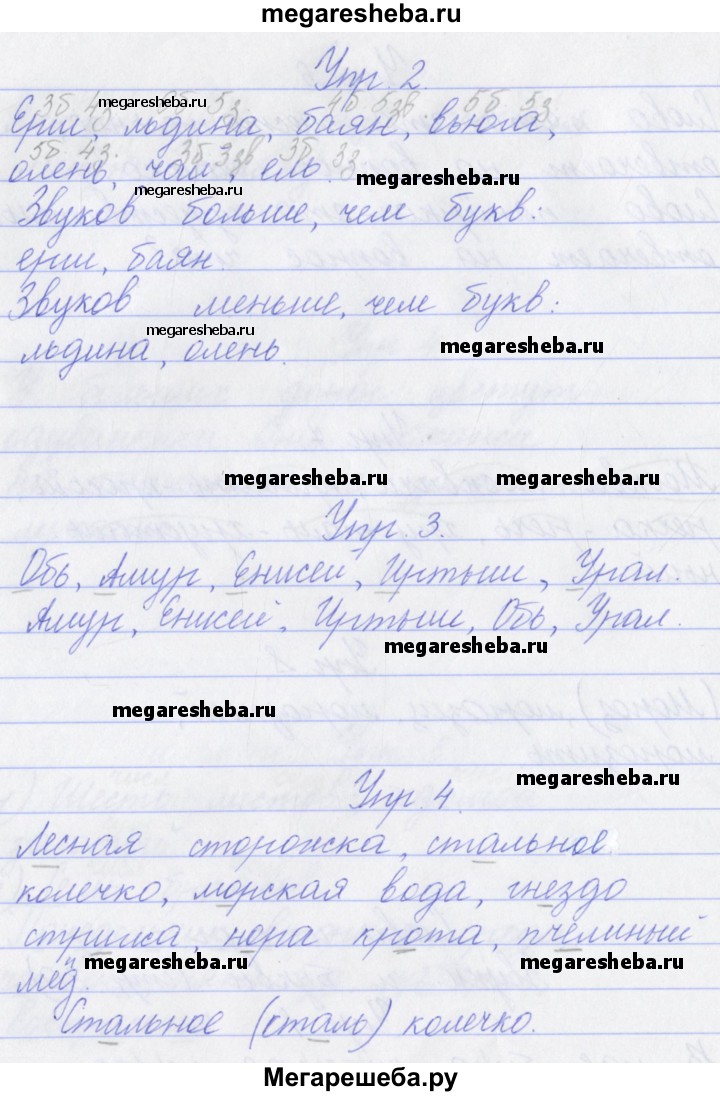 megaresheba.ru
Упр. 2.
3б 4з 5з 4б 5зв 5б 5з
megaresheba.ru
Ерши, льдина, баян, вьюга,
5б 4з. 3б 3зв 3б 3з
олень, чай, ель.
megaresheba.ru
megaresheba.ru
Звуков больше, чем букв:
ерши, баян.
Звуков меньше, чем букв:
megaresheba.ru
megaresheba.ru
льдина, олень.
megaresheba.ru megaresheba.ru
Упр. 3.
Обь, Амур, Енисей, Иртыш, Урал.
Амур, Енисей, Иртыш, Обь, Урал.
megaresheba.ru
megaresheba.ru
megaresheba.ru
Упр. 4.
Лесная сторожка, стальное
колечко, морская вода, гнездо
стрижа, нора крота, пчелиный
мёд.
megaresheba.ru megaresheba.ru
Стальное (сталь) колечко.
Мегарешеба.ру